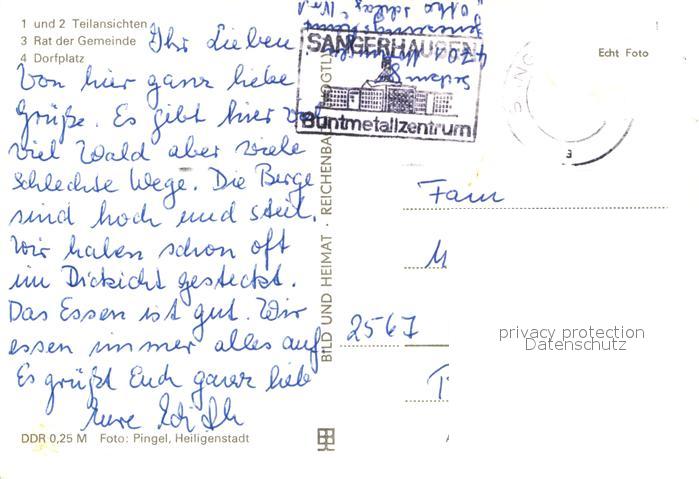 1 und 2 Teilansichten
3 Rat der Gemeinde
4 Dorfplatz
Ihr Lieben
Von hier ganz liebe
Grüße. Es gibt hier
viel Wald aber viele
schlechte Wege. Die Berge
sind hoch und steil.
Wir haben schon oft
im Dickicht gesteckt.
Das Essen ist gut. Wir
essen immer alles auf
Es grüßt Euch ganz lieb
Eure Edith
DDR 0,25 M Foto: Pingel, Heiligenstadt
BILD UND HEIMAT · REICHENBACH (VOGTL
SANGERHAUSEN
Buntmetallzentrum
4701
Echt Foto
Fam
M
2567
privacy protection
Datenschutz